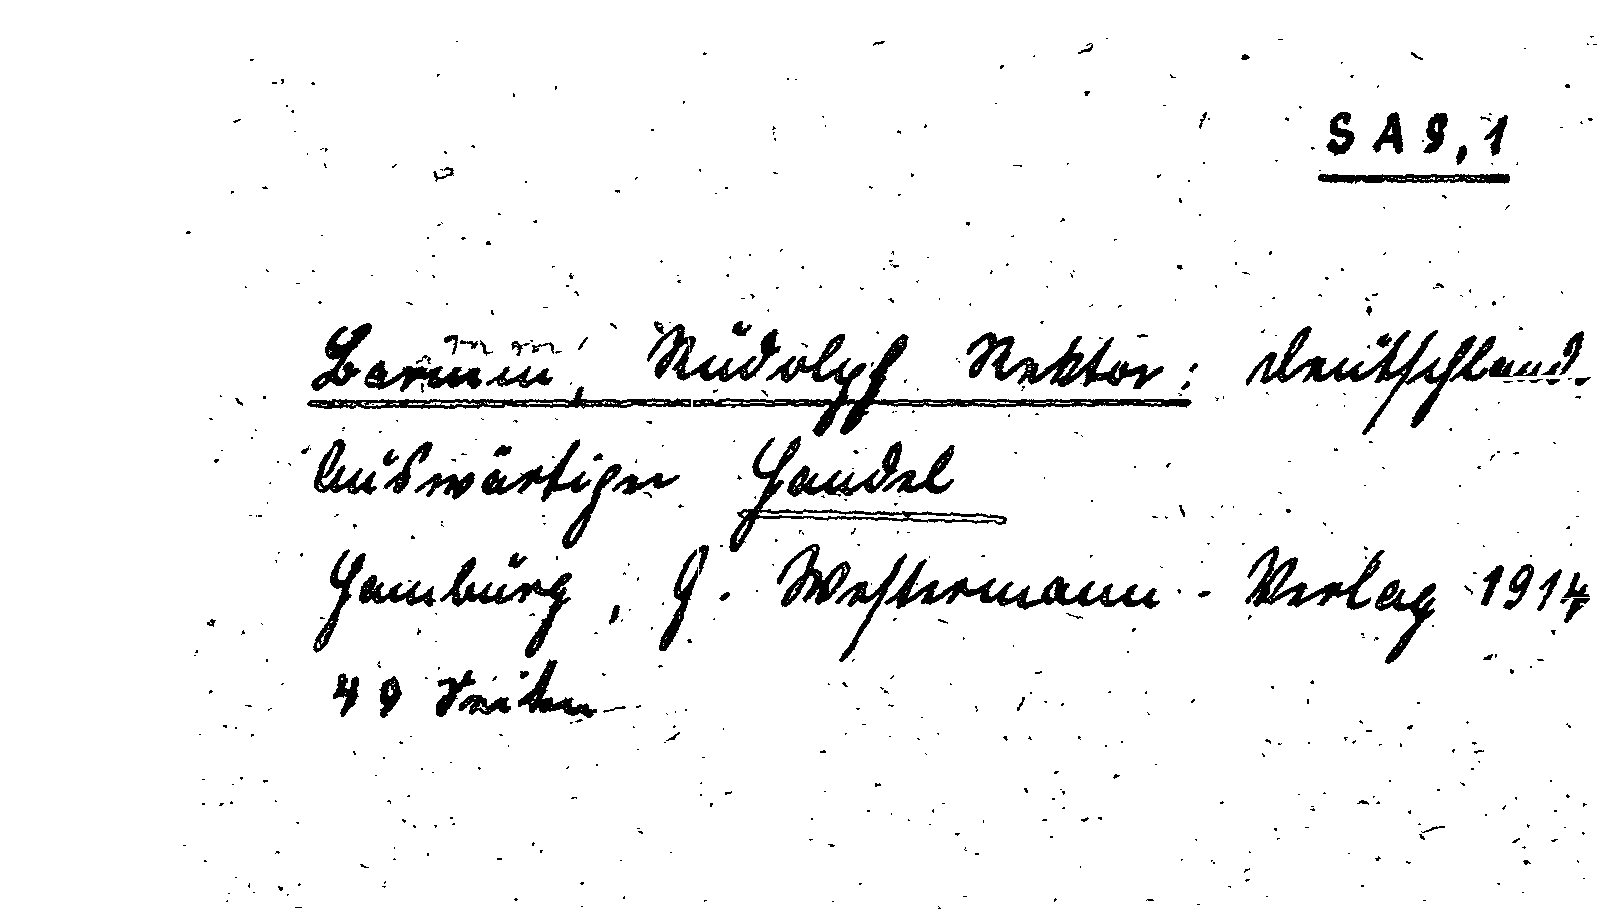 S A 9, 1
Barmm, Rudolph Rektor: Deutschland.
Auswärtiger Handel
Hamburg, G. Westermann - Verlag 1914
49 Seiten